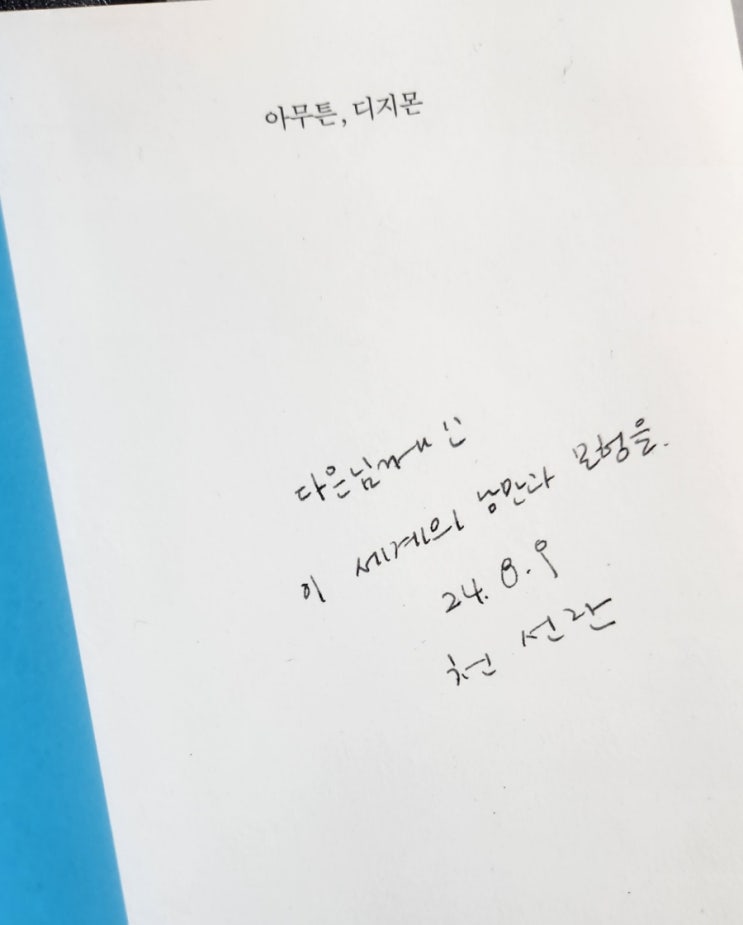 아무튼, 디지몬
다은님께
이 세계의 낭만과 모험을.
24. 8. 9
천 선란